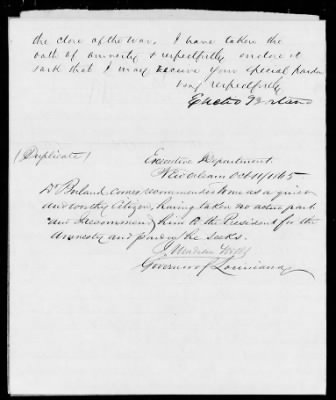 the close of the war. I have taken the
oath of amnesty & respectfully enclose it
& ask that I may receive your special pardon
Very respectfully
(Duplicate)
Executive Department
New Orleans Oct 11/1865
Dr Borland comes recommended to me as a quiet
and worthy Citizen, having taken no active part
and I recommend him to the President for the
Amnesty and pardon he seeks.
J. Madison Wells
Governor of Louisiana